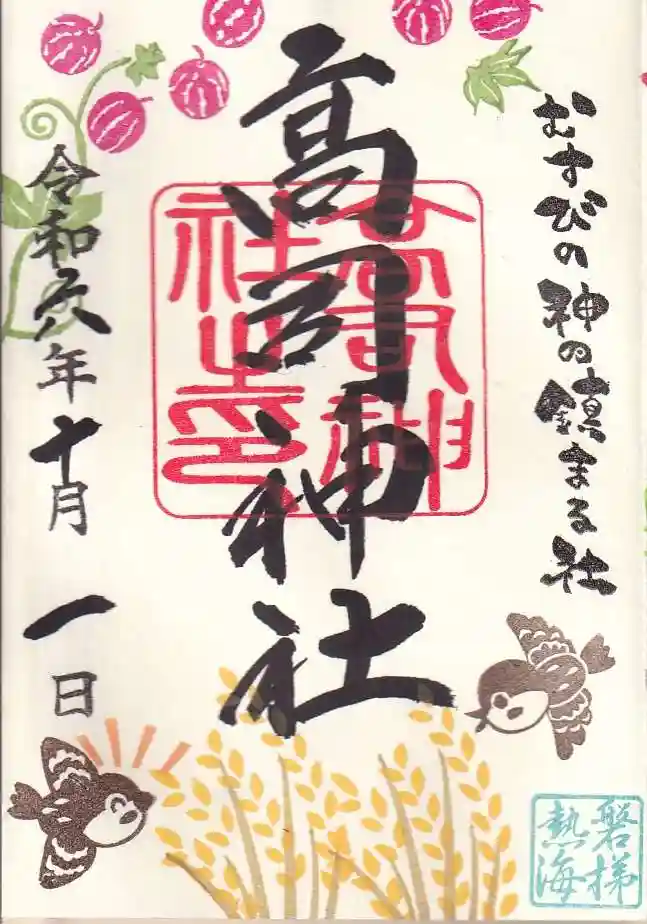 むすびの神の鎮まる社
高司神社
高司神社之印
令和六年十月一日
磐梯
熱海